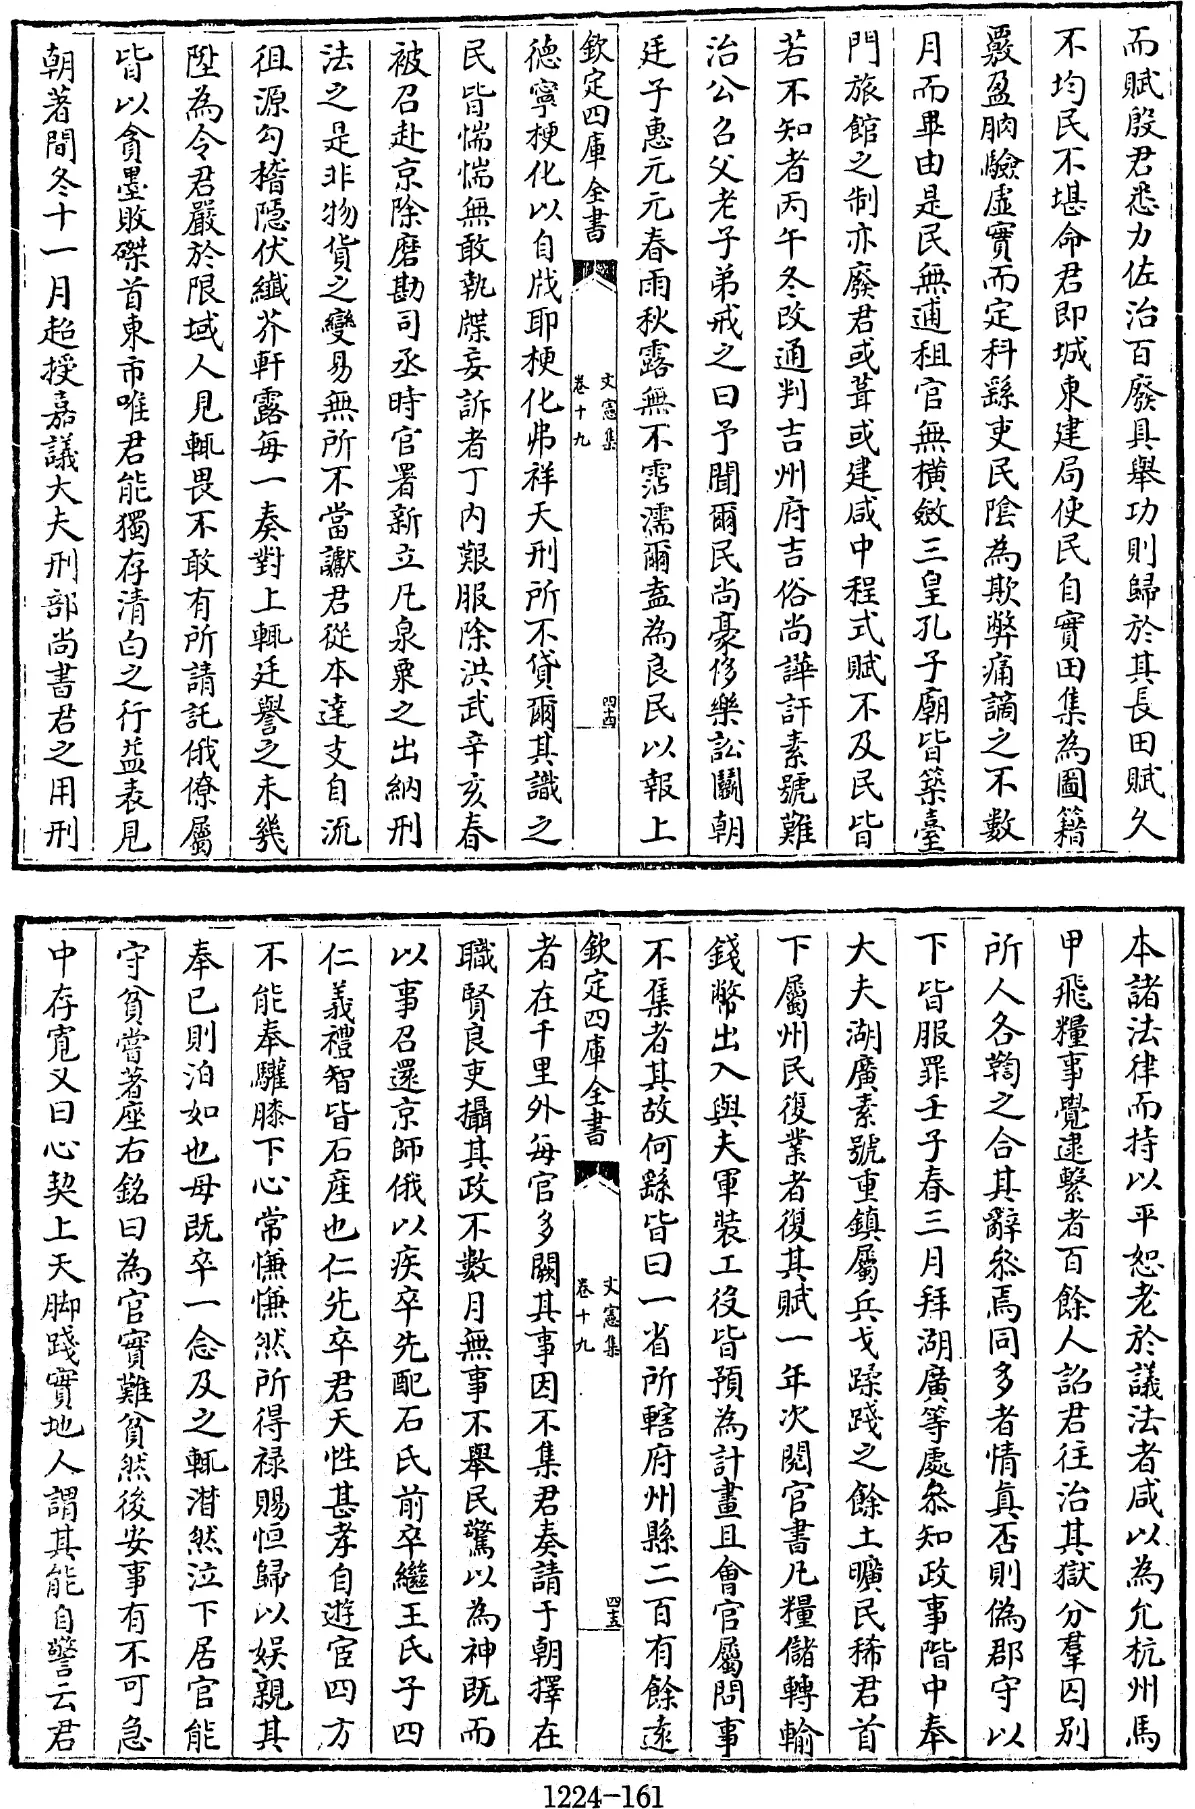 而賦殷君悉力佐治百廢具舉功則歸於其長田賦久
不均民不堪命君即城東建局使民自實田集為圖籍
覈盈朒驗虛實而定科繇吏民陰為欺弊痛謫之不數
月而畢由是民無逋租官無橫斂三皇孔子廟皆築臺
門旅館之制亦廢君或葺或建咸中程式賦不及民皆
若不知者丙午冬改通判吉州府吉俗尚譁訐素號難
治公召父老子弟戒之曰予聞爾民尚豪侈樂訟鬭朝
廷子惠元元春雨秋露無不霑濡爾盍為良民以報上
欽定四庫全書
文憲集
卷十九
四十四
德寧梗化以自戕耶梗化弗祥天刑所不貸爾其識之
民皆惴惴無敢執牒妄訴者丁內艱服除洪武辛亥春
被召赴京除磨勘司丞時官署新立凡泉粟之出納刑
法之是非物貨之變易無所不當讞君從本達支自流
徂源勾稽隱伏纖芥軒露每一奏對上輒廷譽之未幾
陞為令君嚴於限域人見輒畏不敢有所請託俄僚屬
皆以貪墨敗磔首東市唯君能獨存清白之行益表見
朝著間冬十一月超授嘉議大夫刑部尚書君之用刑
本諸法律而持以平恕老於議法者咸以為允杭州馬
甲飛糧事覺逮繫者百餘人詔君往治其獄分羣囚別
所人各鞫之合其辭叅焉同多者情真否則偽郡守以
下皆服罪壬子春三月拜湖廣等處叅知政事階中奉
大夫湖廣素號重鎮屬兵戈蹂踐之餘土曠民稀君首
下屬州民復業者復其賦一年次閱官書凡糧儲轉輸
錢幣出入與夫軍裝工役皆預為計畫且會官屬問事
不集者其故何繇皆曰一省所轄府州縣二百有餘遠
欽定四庫全書
文憲集
卷十九
四十五
者在千里外每官多闕其事因不集君奏請于朝擇在
職賢良吏攝其政不數月無事不舉民驚以為神既而
以事召還京師俄以疾卒先配石氏前卒繼王氏子四
仁義禮智皆石產也仁先卒君天性甚孝自遊宦四方
不能奉驩膝下心常慊慊然所得祿賜恒歸以娱親其
奉已則泊如也母既卒一念及之輒潸然泣下居官能
守貧嘗著座右銘曰為官實難貧然後安事有不可急
中存寬又曰心契上天脚踐實地人謂其能自警云君
1224-161